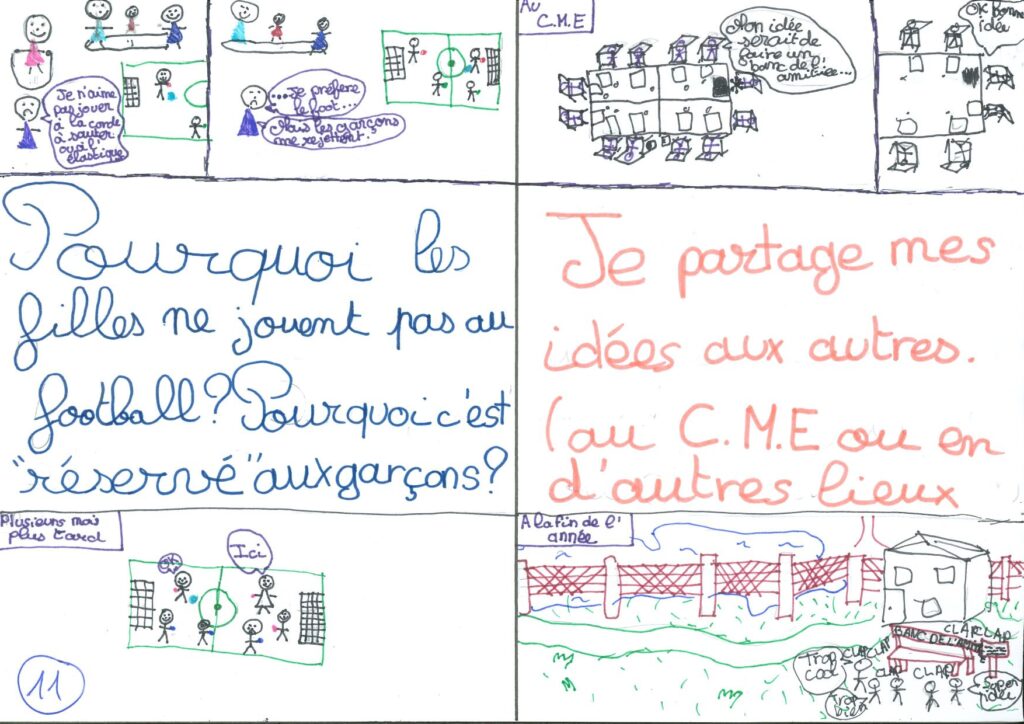 Je n'aime
pas jouer
à la corde
à sauter
ou à l'
élastique
...Je préfère
le foot...
Mais les garçons
me rejettent.
Au
C.M.E
Mon idée
serait de
faire un
banc de l'
amitiée...
OK bonne
idée
Pourquoi les
filles ne jouent pas au
football? Pourquoi c'est
"réservé" aux garçons?
Je partage mes
idées aux autres.
(au C.M.E ou en
d'autres lieux
Plusieurs mois
plus tard
Ici
11
A la fin de l'
année
BANC DE L'AMITIÉ
CLAP CLAP
CLAP
CLAP
CLAP
CLAP
Trop
cool
Trop
bien
Super
idée